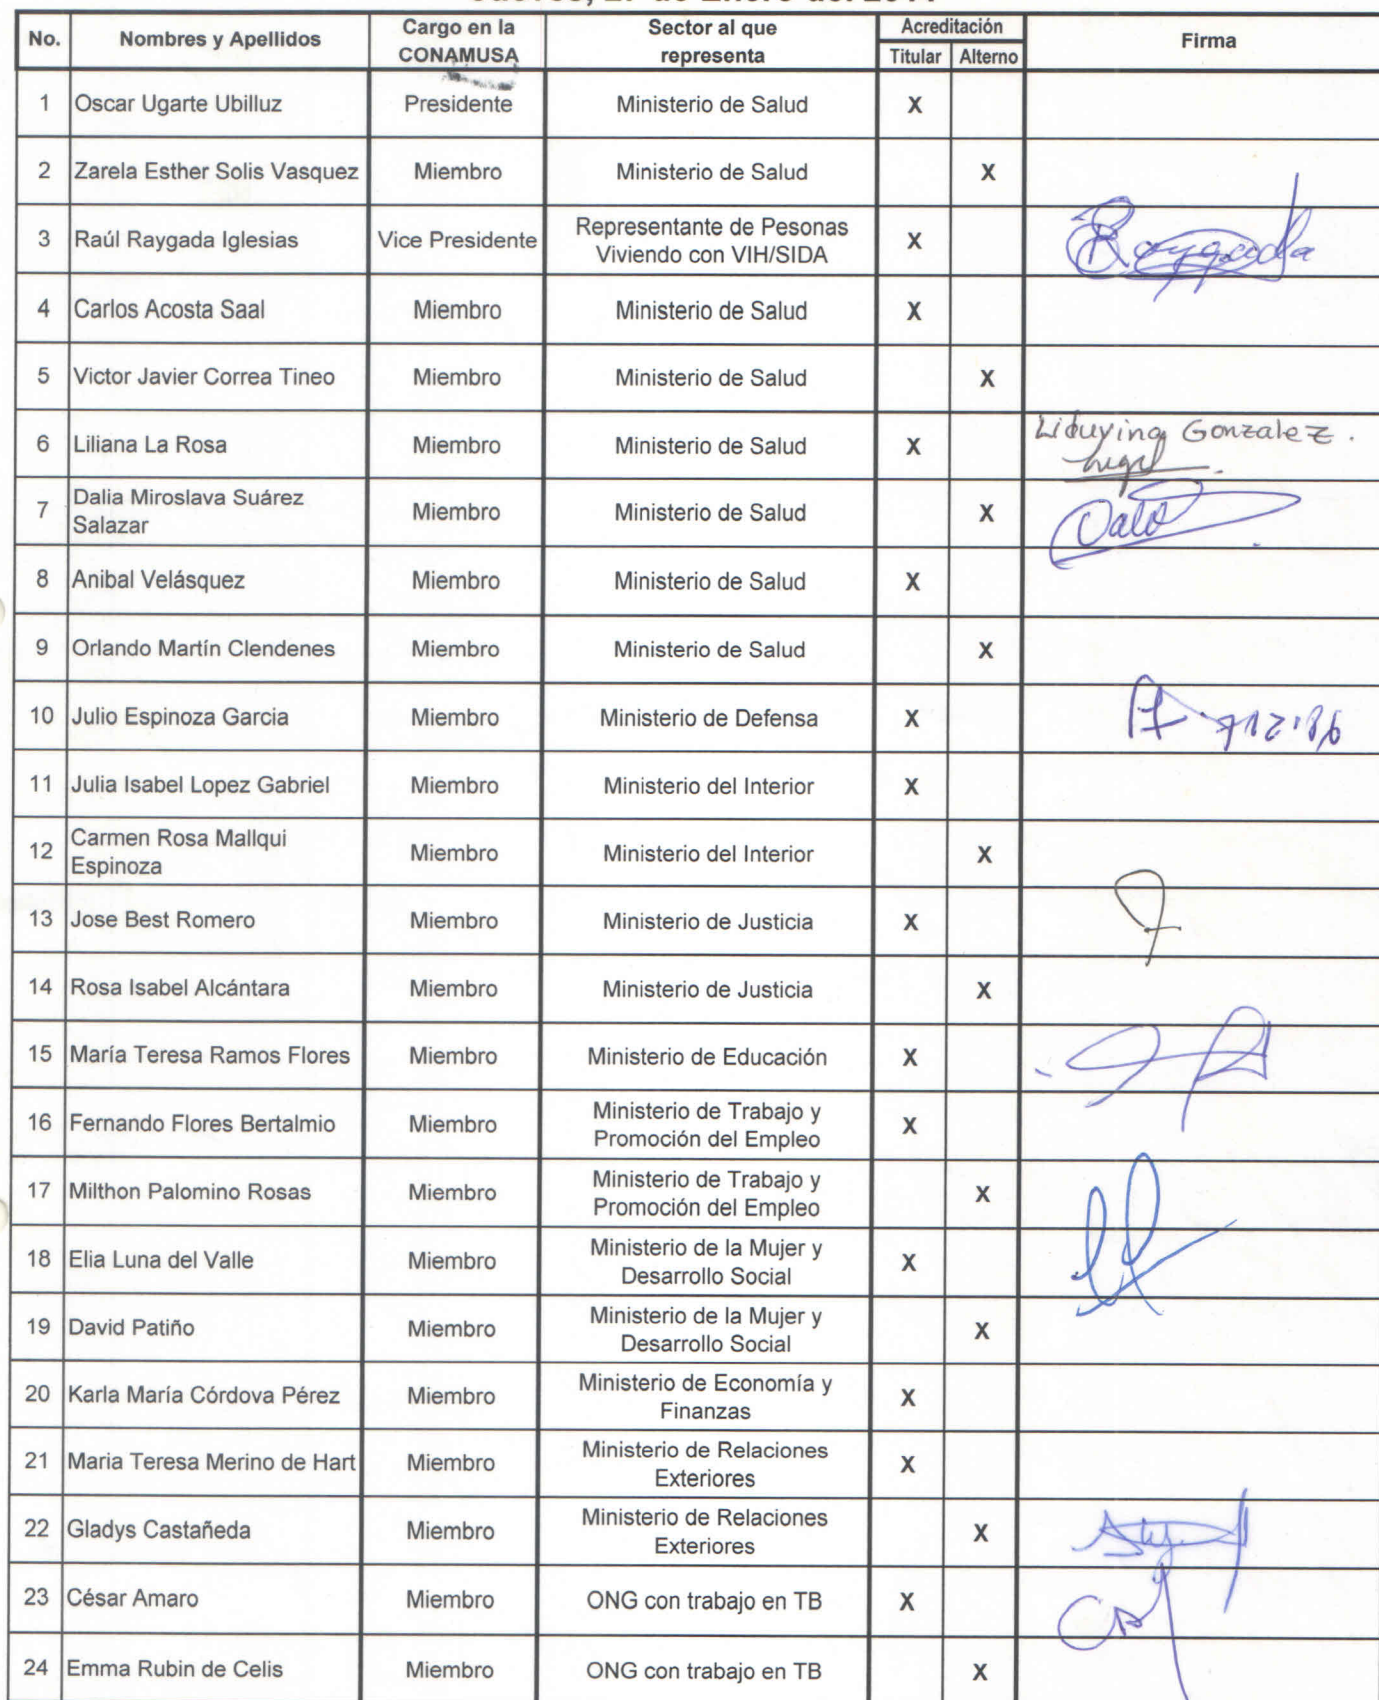 No. Nombres y Apellidos Cargo en la CONAMUSA Sector al que representa Acreditación Titular Alterno Firma
1 Oscar Ugarte Ubilluz Presidente Ministerio de Salud X
2 Zarela Esther Solis Vasquez Miembro Ministerio de Salud X
3 Raúl Raygada Iglesias Vice Presidente Representante de Pesonas Viviendo con VIH/SIDA X Raygada
4 Carlos Acosta Saal Miembro Ministerio de Salud X
5 Victor Javier Correa Tineo Miembro Ministerio de Salud X
6 Liliana La Rosa Miembro Ministerio de Salud X Gonzalez.
7 Dalia Miroslava Suárez Salazar Miembro Ministerio de Salud X
8 Anibal Velásquez Miembro Ministerio de Salud X
9 Orlando Martín Clendenes Miembro Ministerio de Salud X
10 Julio Espinoza Garcia Miembro Ministerio de Defensa X
11 Julia Isabel Lopez Gabriel Miembro Ministerio del Interior X
12 Carmen Rosa Mallqui Espinoza Miembro Ministerio del Interior X
13 Jose Best Romero Miembro Ministerio de Justicia X
14 Rosa Isabel Alcántara Miembro Ministerio de Justicia X
15 María Teresa Ramos Flores Miembro Ministerio de Educación X
16 Fernando Flores Bertalmio Miembro Ministerio de Trabajo y Promoción del Empleo X
17 Milthon Palomino Rosas Miembro Ministerio de Trabajo y Promoción del Empleo X
18 Elia Luna del Valle Miembro Ministerio de la Mujer y Desarrollo Social X
19 David Patiño Miembro Ministerio de la Mujer y Desarrollo Social X
20 Karla María Córdova Pérez Miembro Ministerio de Economía y Finanzas X
21 Maria Teresa Merino de Hart Miembro Ministerio de Relaciones Exteriores X
22 Gladys Castañeda Miembro Ministerio de Relaciones Exteriores X
23 César Amaro Miembro ONG con trabajo en TB X
24 Emma Rubin de Celis Miembro ONG con trabajo en TB X